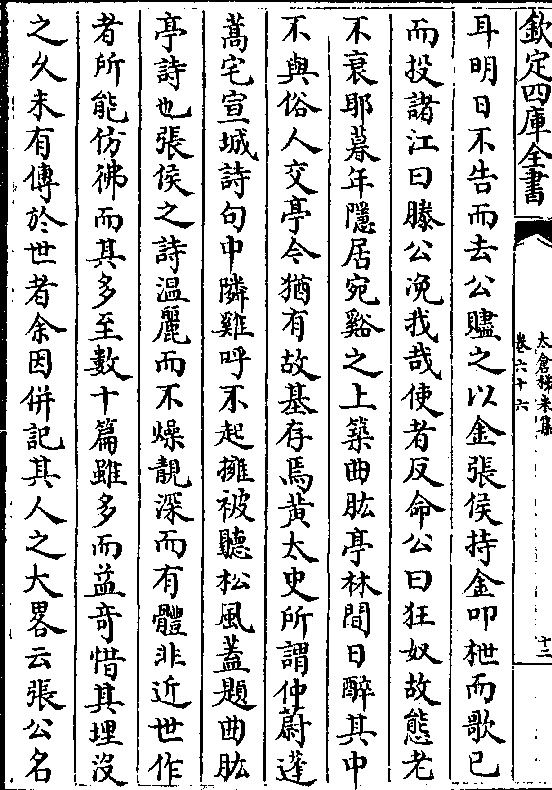 欽定四庫全書
太倉稊米集
卷六十六
十二
耳明日不告而去公贐之以金張侯持金叩枻而歌已
而投諸江曰滕公凂我哉使者反命公曰狂奴故態老
不衰耶暮年隱居宛谿之上築曲肱亭林間日醉其中
不與俗人交亭今猶有故基存焉黄太史所謂仲蔚蓬
蒿宅宣城詩句中隣雞呼不起擁被聽松風蓋題曲肱
亭詩也張侯之詩温麗而不燥靚深而有體非近世作
者所能仿彿而其多至數十篇雖多而益奇惜其埋沒
之久未有傳於世者余因併記其人之大畧云張公名